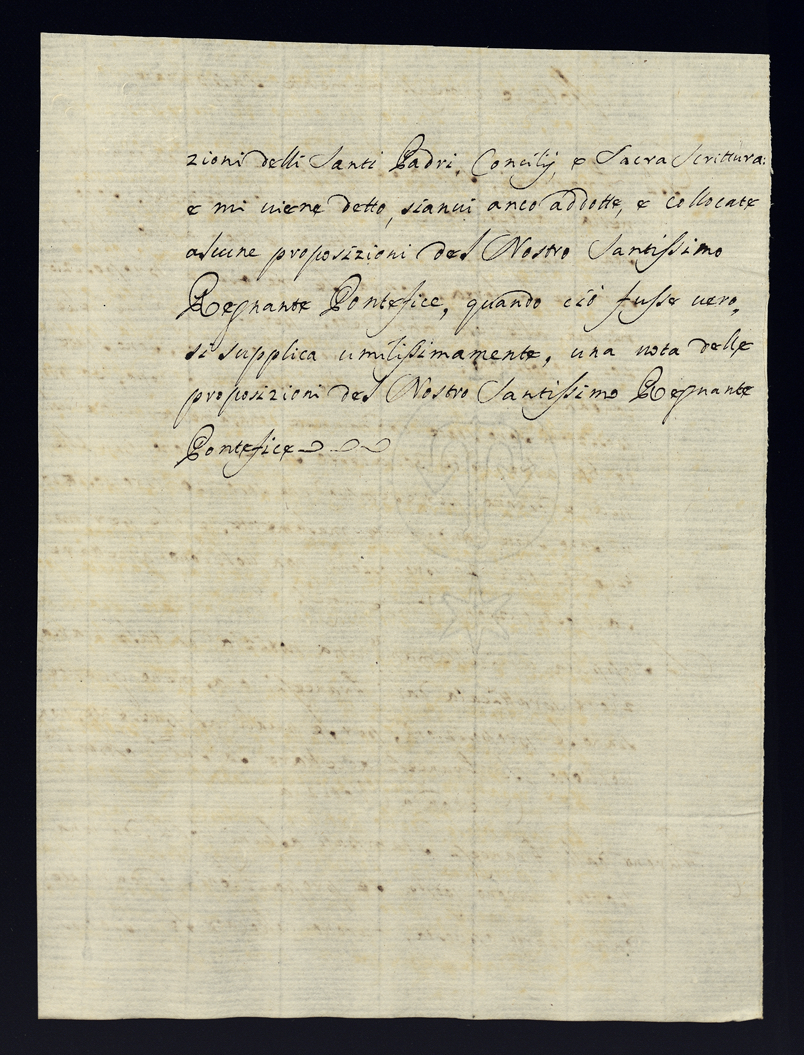 zioni delli Santi Padri, Concilij, e Sacra Scrittura:
e mi viene detto, sianvi anco addotte, e collocate
alcune proposizioni del Nostro Santissimo
Regnante Pontefice, quando ciò fusse vero,
si supplica umilissimamente, una nota delle
proposizioni del Nostro Santissimo Regnante
Pontefice